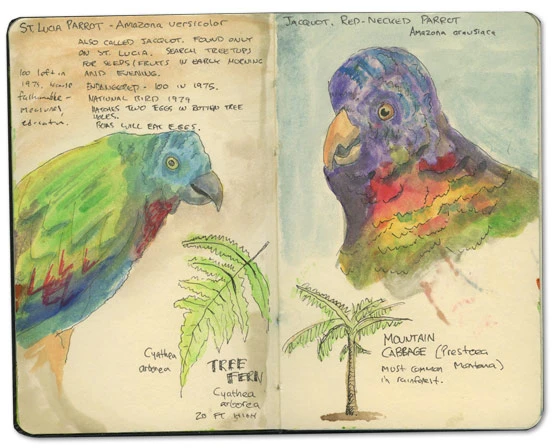 ST LUCIA PARROT - Amazona versicolor
ALSO CALLED JACQUOT. FOUND ONLY
ON ST. LUCIA. SEARCH TREETOPS
FOR SEEDS/FRUITS IN EARLY MORNING
AND EVENING.
ENDANGERED - 100 IN 1975.
NATIONAL BIRD 1979
TWO EGGS IN ROTTEN TREE
HOLES.
BOAS WILL EAT EGGS.
100 left in
1975,
JACQUOT, RED-NECKED PARROT
Amazona arausiaca
Cyathea
arborea
TREE
FERN
Cyathea
arborea
20 FT HIGH
MOUNTAIN
CABBAGE (Prestoea
MOST COMMON Montana)
in rainforest.